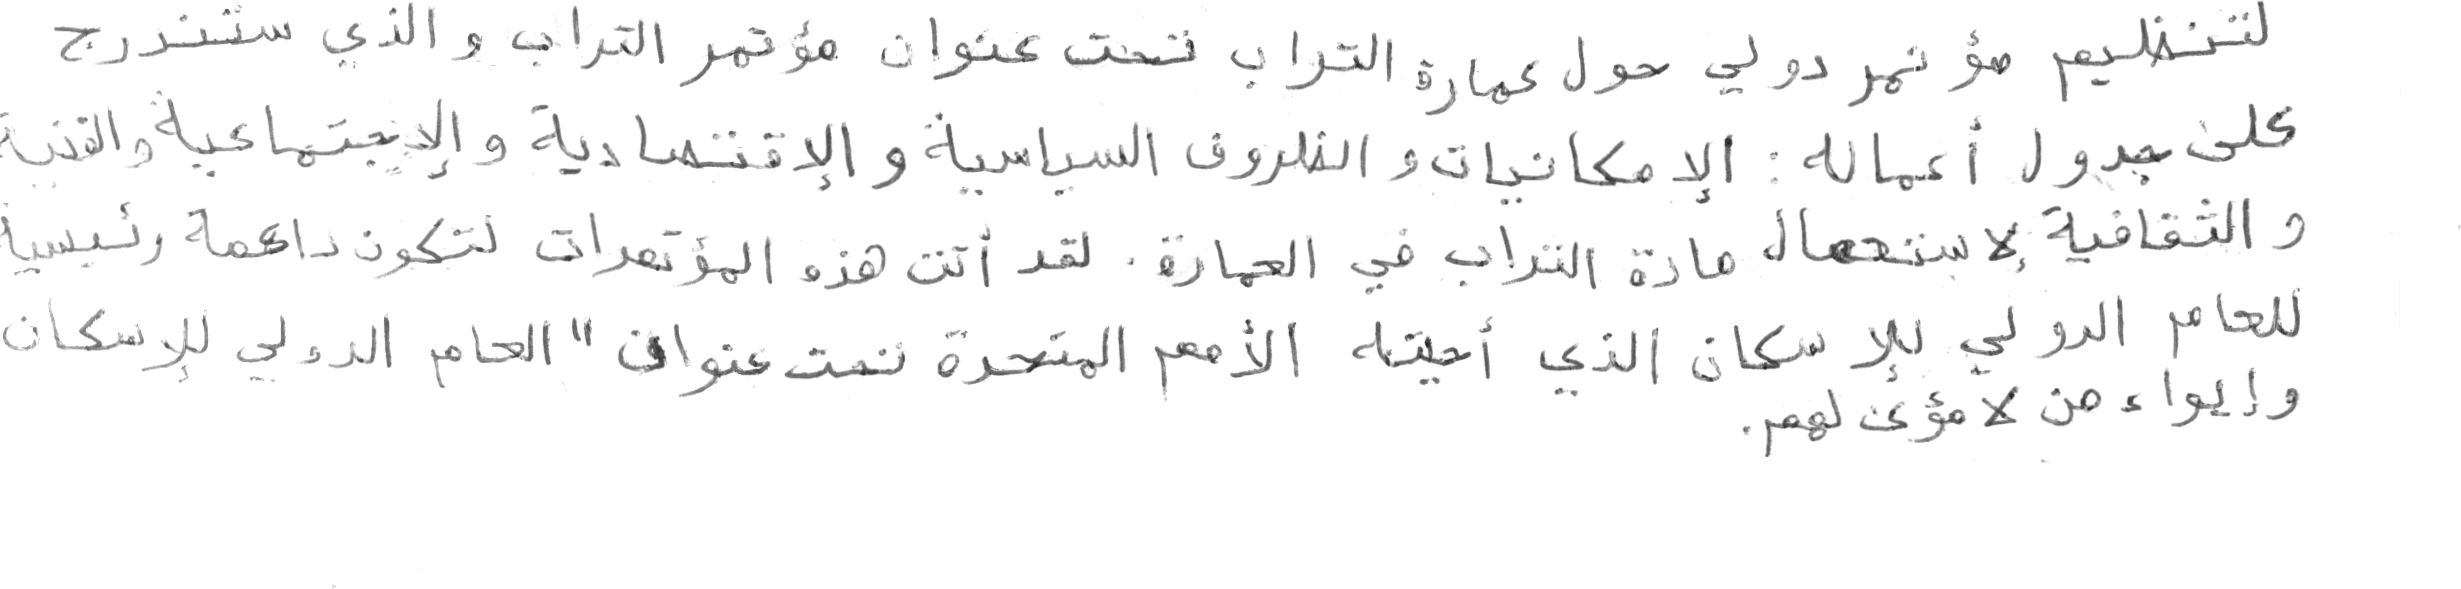 لتنظيم مؤتمر دولي حول عمارة التراب تحت عنوان مؤتمر التراب و الذي ستندرج
على جدول أعماله : الإمكانيات و الظروف السياسية و الإقتصادية و الإجتماعية و التقنية
و الثقافية لإستعمال مادة التراب في العمارة . لقد أتت هذه المؤتمرات لتكون داعمة رئيسية
للعام الدولي للإسكان الذي أحيته الأمم المتحدة تحت عنوان " العام الدولي للإسكان
و إيواء من لا مؤى لهم .